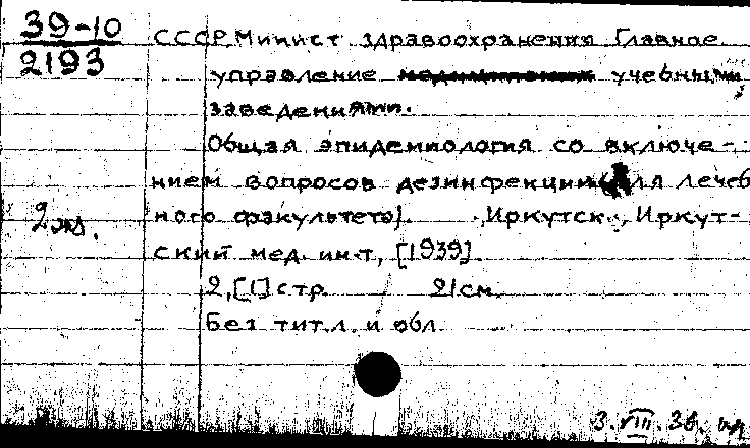 39-10
2193
СССР. Минист здравоохранения Главное
управление учебными
заведениями.
Общая эпидемиология со включе-
нием вопросов дезинфекции (для лечеб
ного факультета). Иркутск, Иркут-
2 экз.
ский мед. ин-т, [1939].
2, [1] стр. 21 см.
Без тит. л. и обл.
3. VIII. 36.